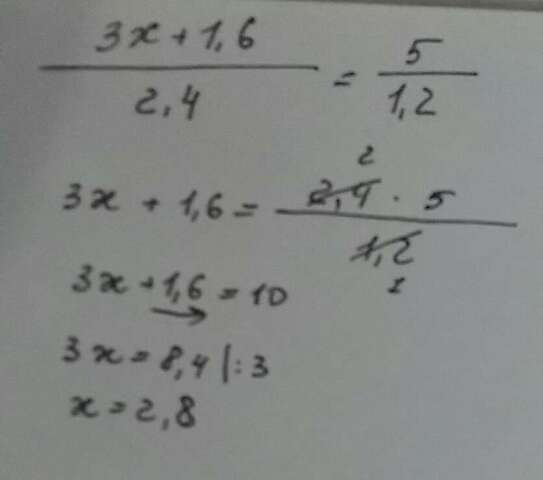 3x + 1,6 / 2,4 = 5 / 1,2
3x + 1,6 = 2,4 · 5 / 1,2
2
1
3x + 1,6 = 10
3x = 8,4 |: 3
x = 2,8